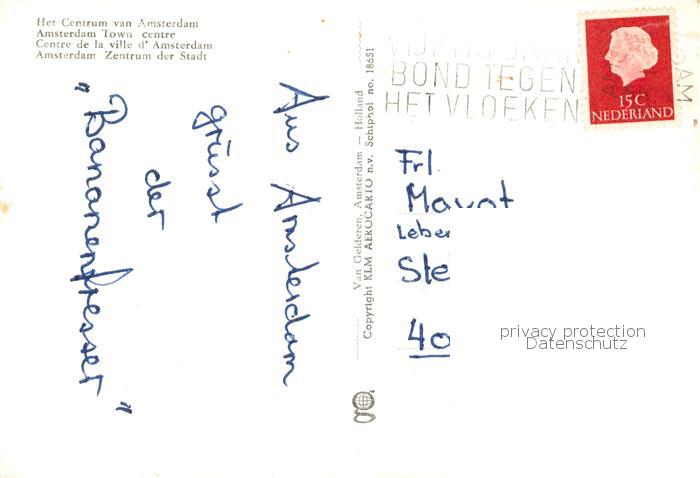 Het Centrum van Amsterdam
Amsterdam Town centre
Centre de la ville d' Amsterdam
Amsterdam Zentrum der Stadt
Aus Amsterdam
grüsst
der
"Bananenfresser"
Van Gelderen, Amsterdam — Holland
Copyright KLM AEROCARTO n.v. Schiphol no. 18651
VIJFTIG JAAR
BOND TEGEN
HET VLOEKEN
DAM
15 C
NEDERLAND
Frl.
Leber
Ste
40
privacy protection
Datenschutz